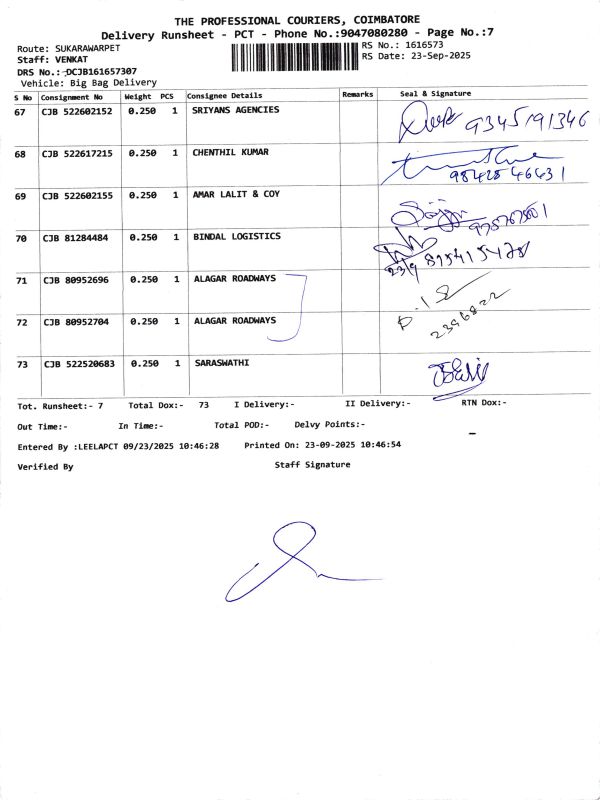 THE PROFESSIONAL COURIERS, COIMBATORE
Delivery Runsheet - PCT - Phone No.:9047080280 - Page No.:7
Route: SUKARAWARPET
RS No.: 1616573
Staff: VENKAT
RS Date: 23-Sep-2025
DRS No.: DCJB161657307
Vehicle: Big Bag Delivery
S No Consignment No Weight PCS Consignee Details Remarks Seal & Signature
67 CJB 522602152 0.250 1 SRIYANS AGENCIES 9345191346
68 CJB 522617215 0.250 1 CHENTHIL KUMAR
9842846631
69 CJB 522602155 0.250 1 AMAR LALIT & COY
70 CJB 81284484 0.250 1 BINDAL LOGISTICS
23/9
71 CJB 80952696 0.250 1 ALAGAR ROADWAYS
72 CJB 80952704 0.250 1 ALAGAR ROADWAYS
2396822
73 CJB 522520683 0.250 1 SARASWATHI
Tot. Runsheet:- 7 Total Dox:- 73 I Delivery:- II Delivery:- RTN Dox:-
Out Time:- In Time:- Total POD:- Delvy Points:-
Entered By :LEELAPCT 09/23/2025 10:46:28 Printed On: 23-09-2025 10:46:54
Verified By Staff Signature